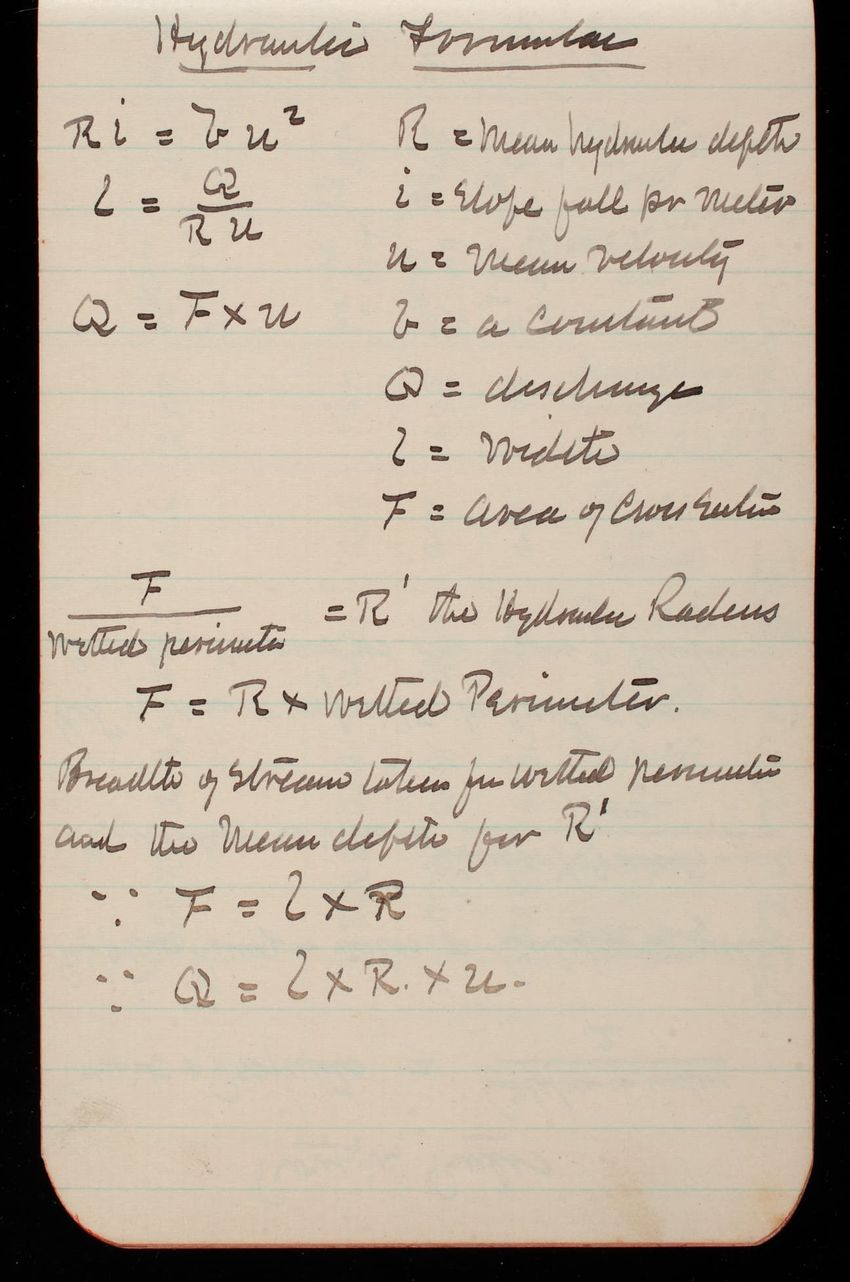 Hydraulic Formulae
R i = b u²
R = Mean hydraulic depth
l = Q / R u
i = Slope fall pr Meter
u = Mean velocity
Q = F × u
b = a Constant
Q = discharge
l = Width
F = Area of Cross Section
F / Wetted perimeter = R' the Hydraulic Radius
F = R × Wetted Perimeter.
Breadth of Stream taken for wetted perimeter
and the Mean depth for R'
∵ F = l × R
∵ Q = l × R. × u.